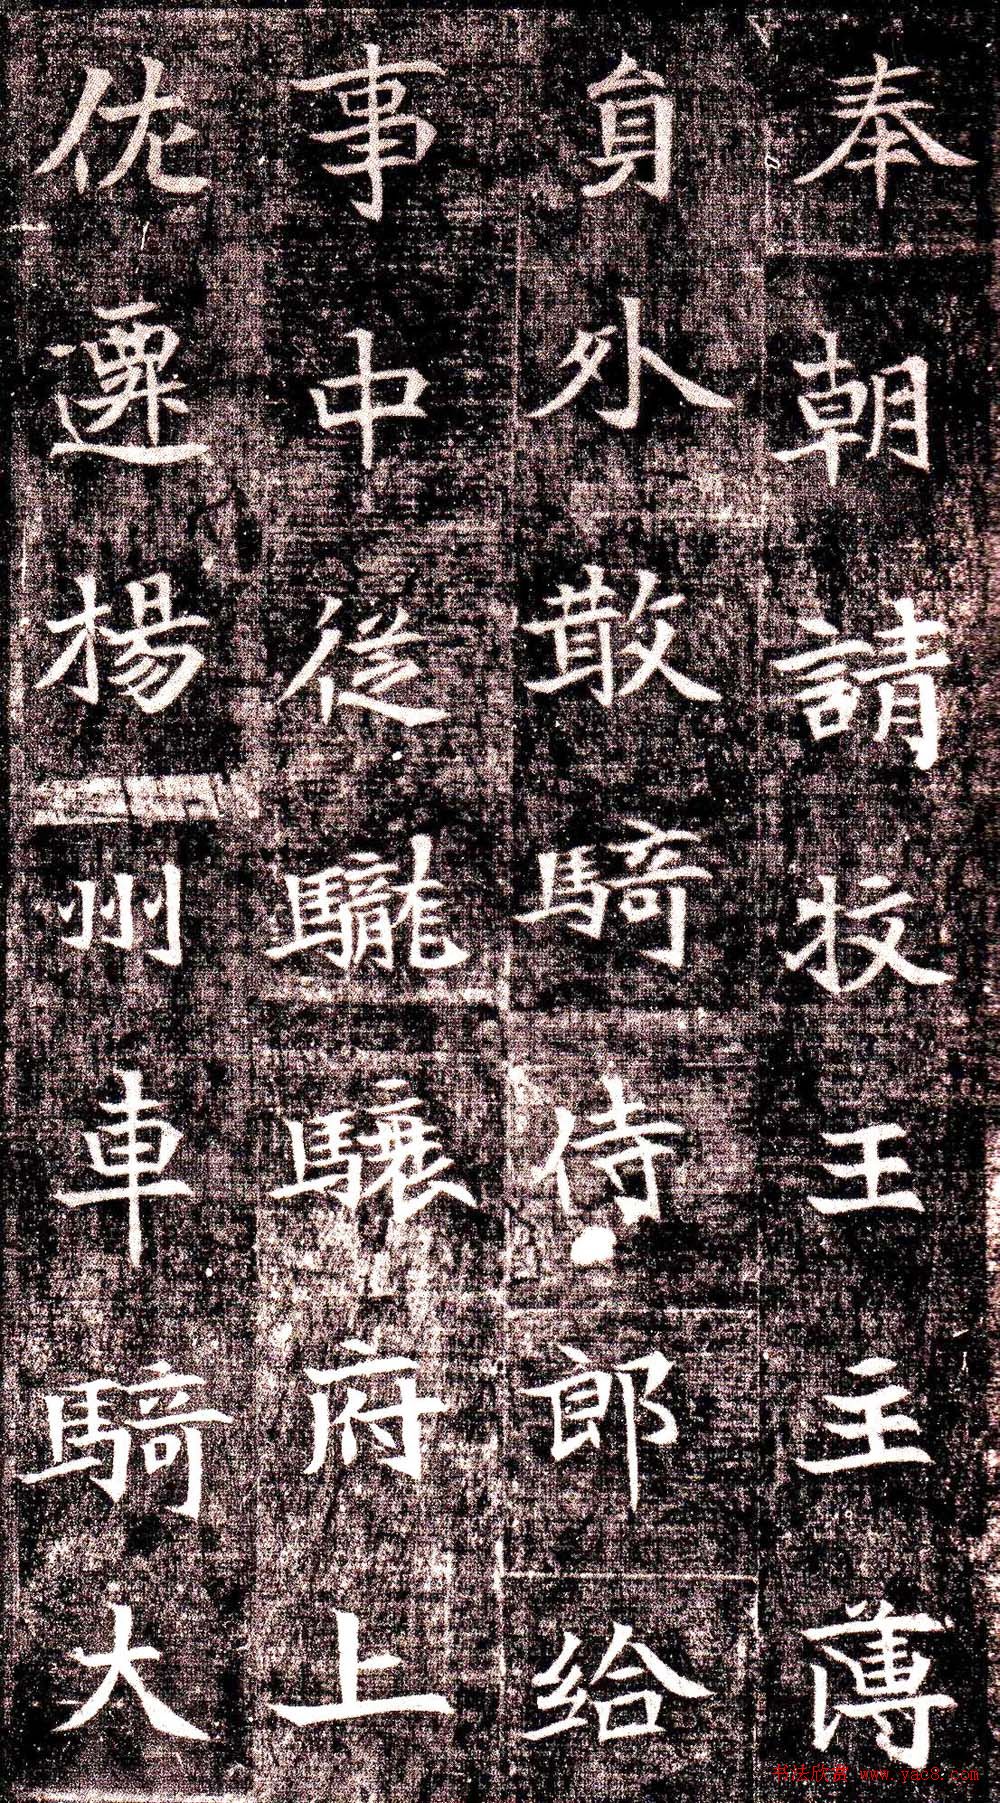 奉朝請牧王主薄
員外散騎侍郎給
事中從驪驤府上
佐遷楊州車騎大
书法欣赏 www.yac8.com